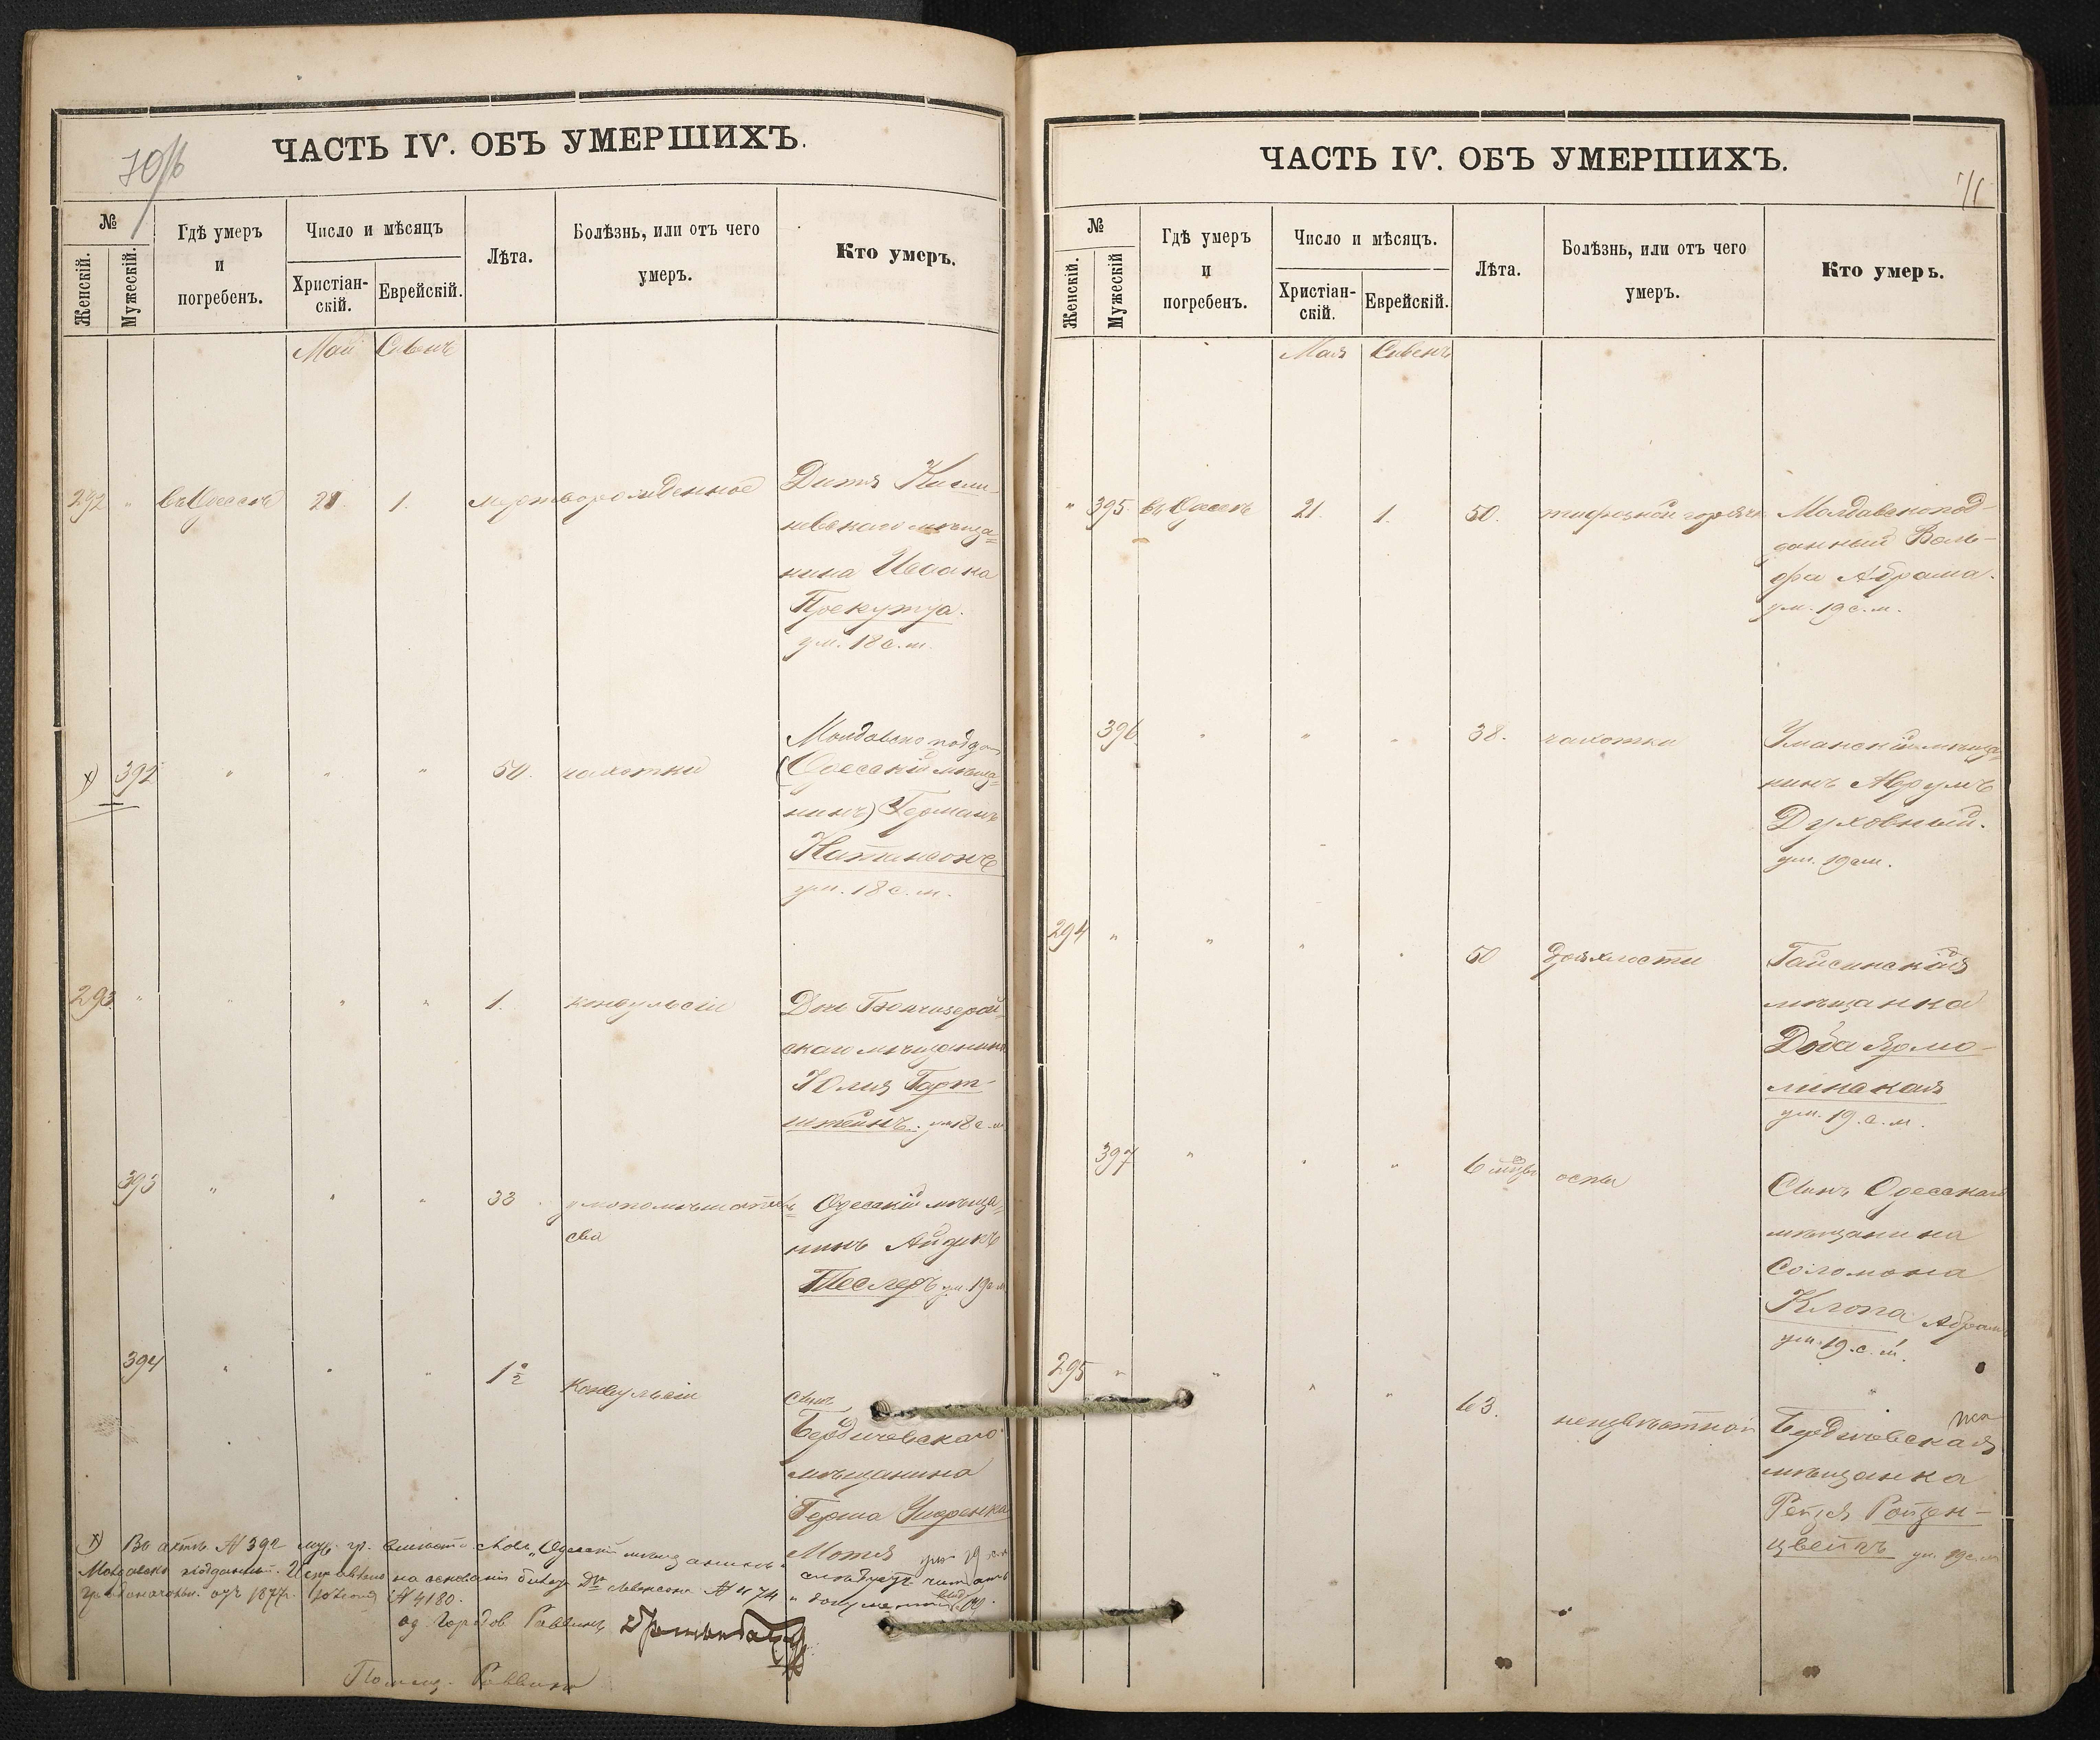 70/б
ЧАСТЬ IV. ОБЪ УМЕРШИХЪ.
№
Женскій.
Мужескій.
Гдѣ умеръ
и
погребенъ.
Число и мѣсяцъ
Христіан-
скій.
Еврейскій.
Лѣта.
Болѣзнь, или отъ чего
умеръ.
Кто умеръ.
Май Сивенъ
292 " въ Одессѣ 21 1. мертворожденное Дитя Киши-
невскаго мѣща=
нина Исаака
Прокутца.
ум. 18 с. м.
х) 392 " " " 50. чахотки Молдавско поддан
(Одесскій мѣща=
нинъ) Германъ
Натансонъ
ум. 18 с. м.
293 " " " " 1. конвульсіи Дчь
скаго мѣщанина
Юлія Гарт-
штейнъ. ум 18 с. м
393 " " " 33. умопомѣшатель=
ства
Одесскій мѣща=
нинъ Айзикъ
Теслеръ ум. 19 с м
394 " " " 1 1/2 Конвульсіи
Сынъ
Бердичевскаго
мѣщанина
Герша
Мотя ум 19 с м
х) Въ актѣ № 392 муж. гр. вмѣсто словъ „Одесскій мѣщанинъ" слѣдуетъ читать
Молдавско подданный. Исправлено на основаніи билета № 474 и документ
1877 г. № 4180.
од Городов Раввинъ
Помощ. Раввина
71
ЧАСТЬ IV. ОБЪ УМЕРШИХЪ.
№
Женскій.
Мужескій
Гдѣ умеръ
и
погребенъ.
Число и мѣсяцъ.
Христіан-
скій.
Еврейскій.
Лѣта.
Болѣзнь, или отъ чего
умеръ.
Кто умеръ.
Мая Сивенъ
" 395. въ Одессѣ 21. 1. 50. тифозной горячк Молдавскопод-
данный Воль-
фъ Абрама.
ум. 19 с. м.
396 " " " 38. чахотки Уманскій мѣща=
нинъ Аврумъ
Духовный.
ум. 19 с м.
294 " " " " 50 дряхлости Гайсинская
мѣщанка
Доба Ярмо-
линская
ум. 19. с. м.
397 " " " 6 мѣс оспы Сынъ Одесскаго
мѣщанина
Соломона
Клопа Абрамъ
ум. 19. с. м.
295 " " " " 63. неизвѣстной Бердичевская
мѣщанка
Рейзя Ройзен-
цвейгъ ум. 19 с. м